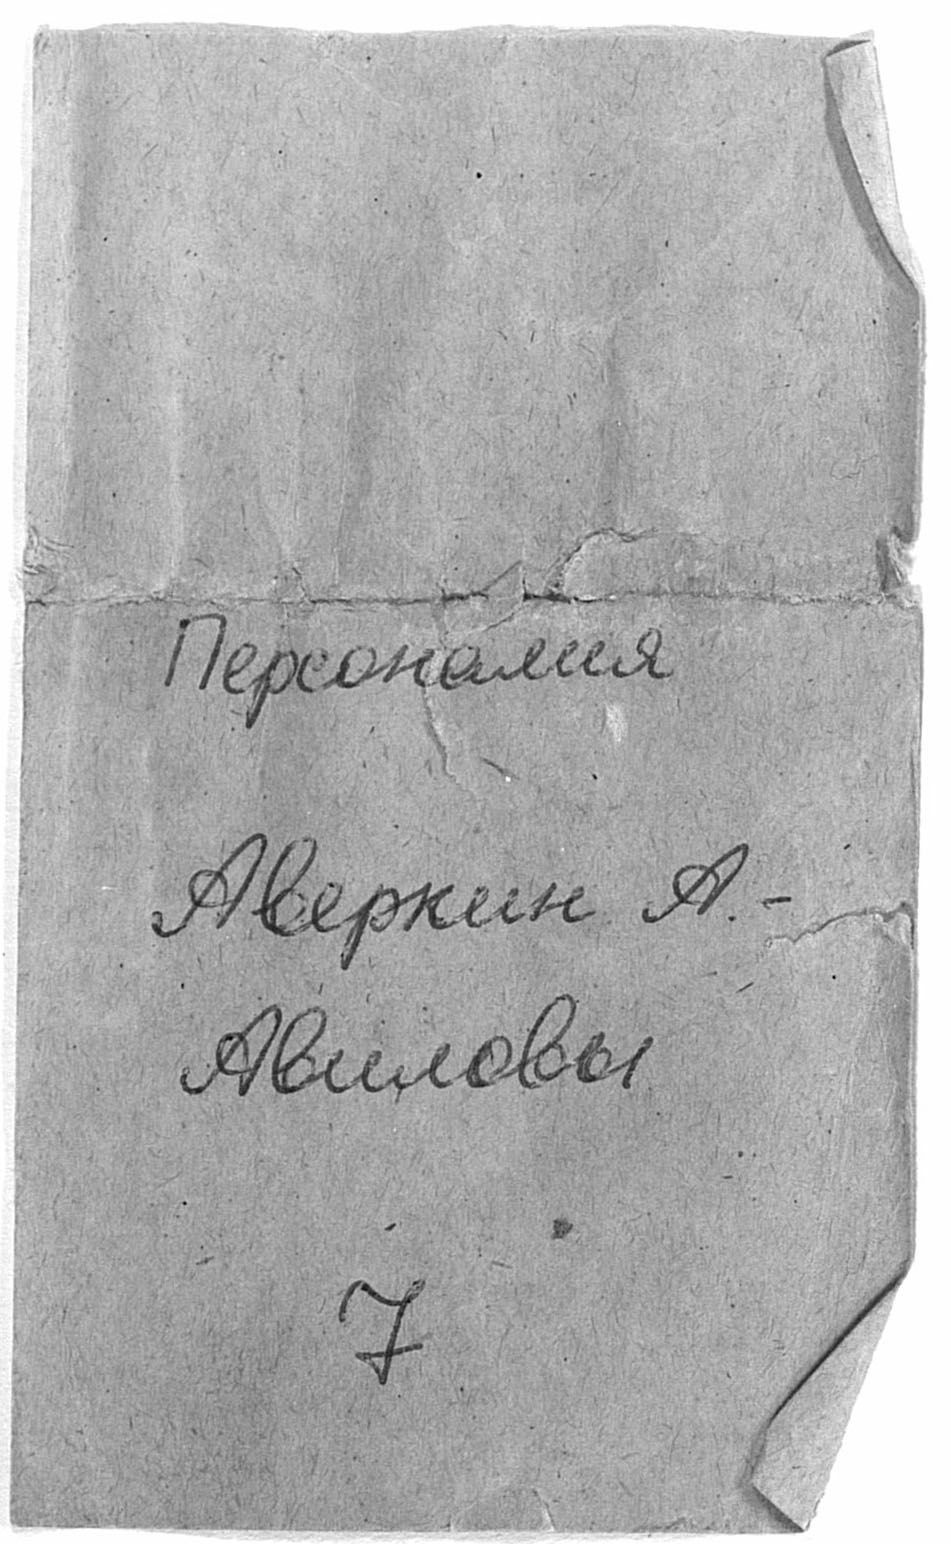 Персоналия
Аверкин А.-
Авиловы
7